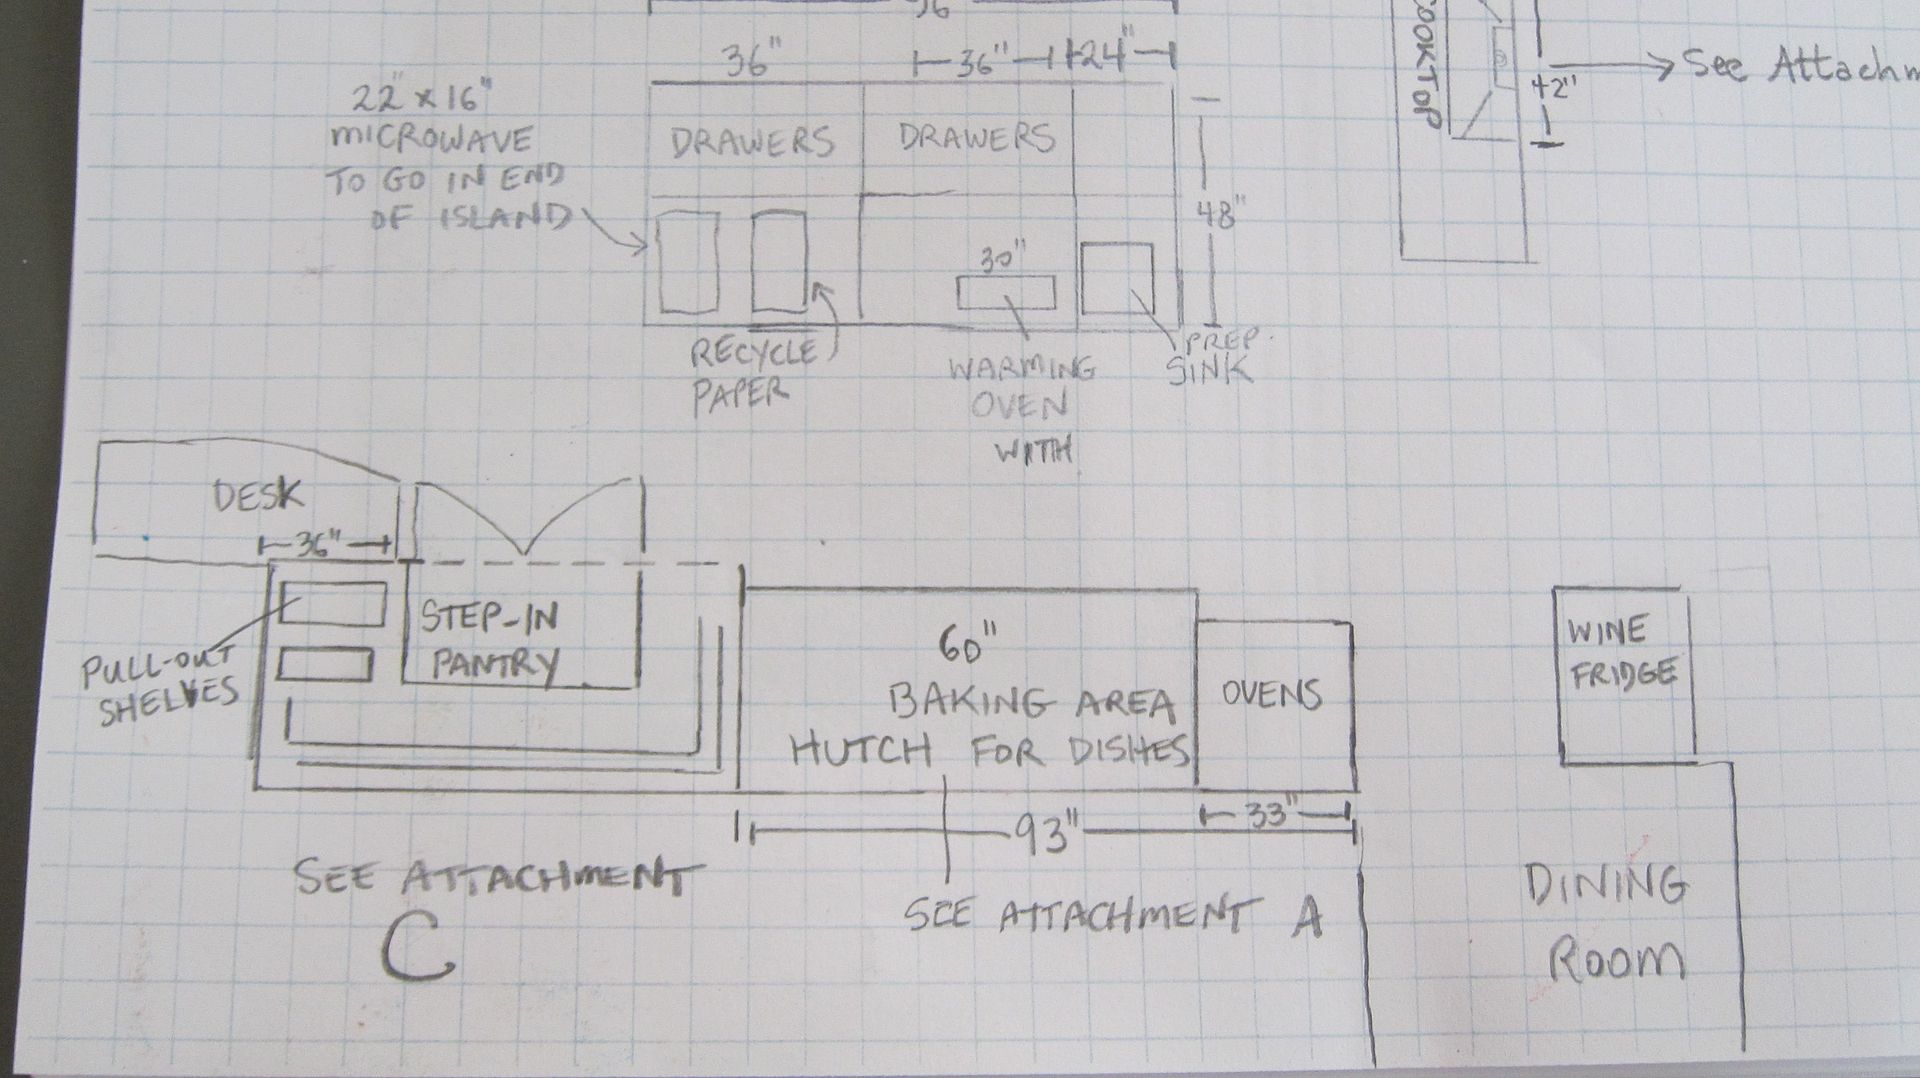 36"
36"
24"
22" x 16"
MICROWAVE
TO GO IN END
OF ISLAND
DRAWERS
DRAWERS
48"
30"
RECYCLE
PAPER
WARMING
OVEN
WITH
PREP
SINK
COOKTOP
42"
See Attachm
DESK
36"
PULL-OUT
SHELVES
STEP-IN
PANTRY
60"
BAKING AREA
HUTCH FOR DISHES
OVENS
33"
93"
WINE
FRIDGE
SEE ATTACHMENT
C
SEE ATTACHMENT A
DINING
ROOM